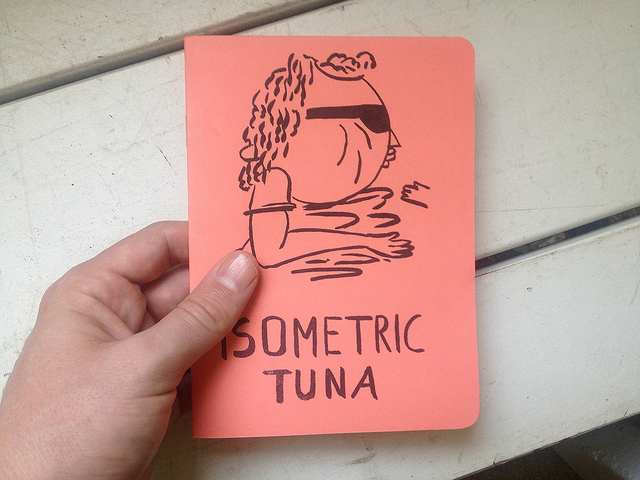 ISOMETRIC
TUNA